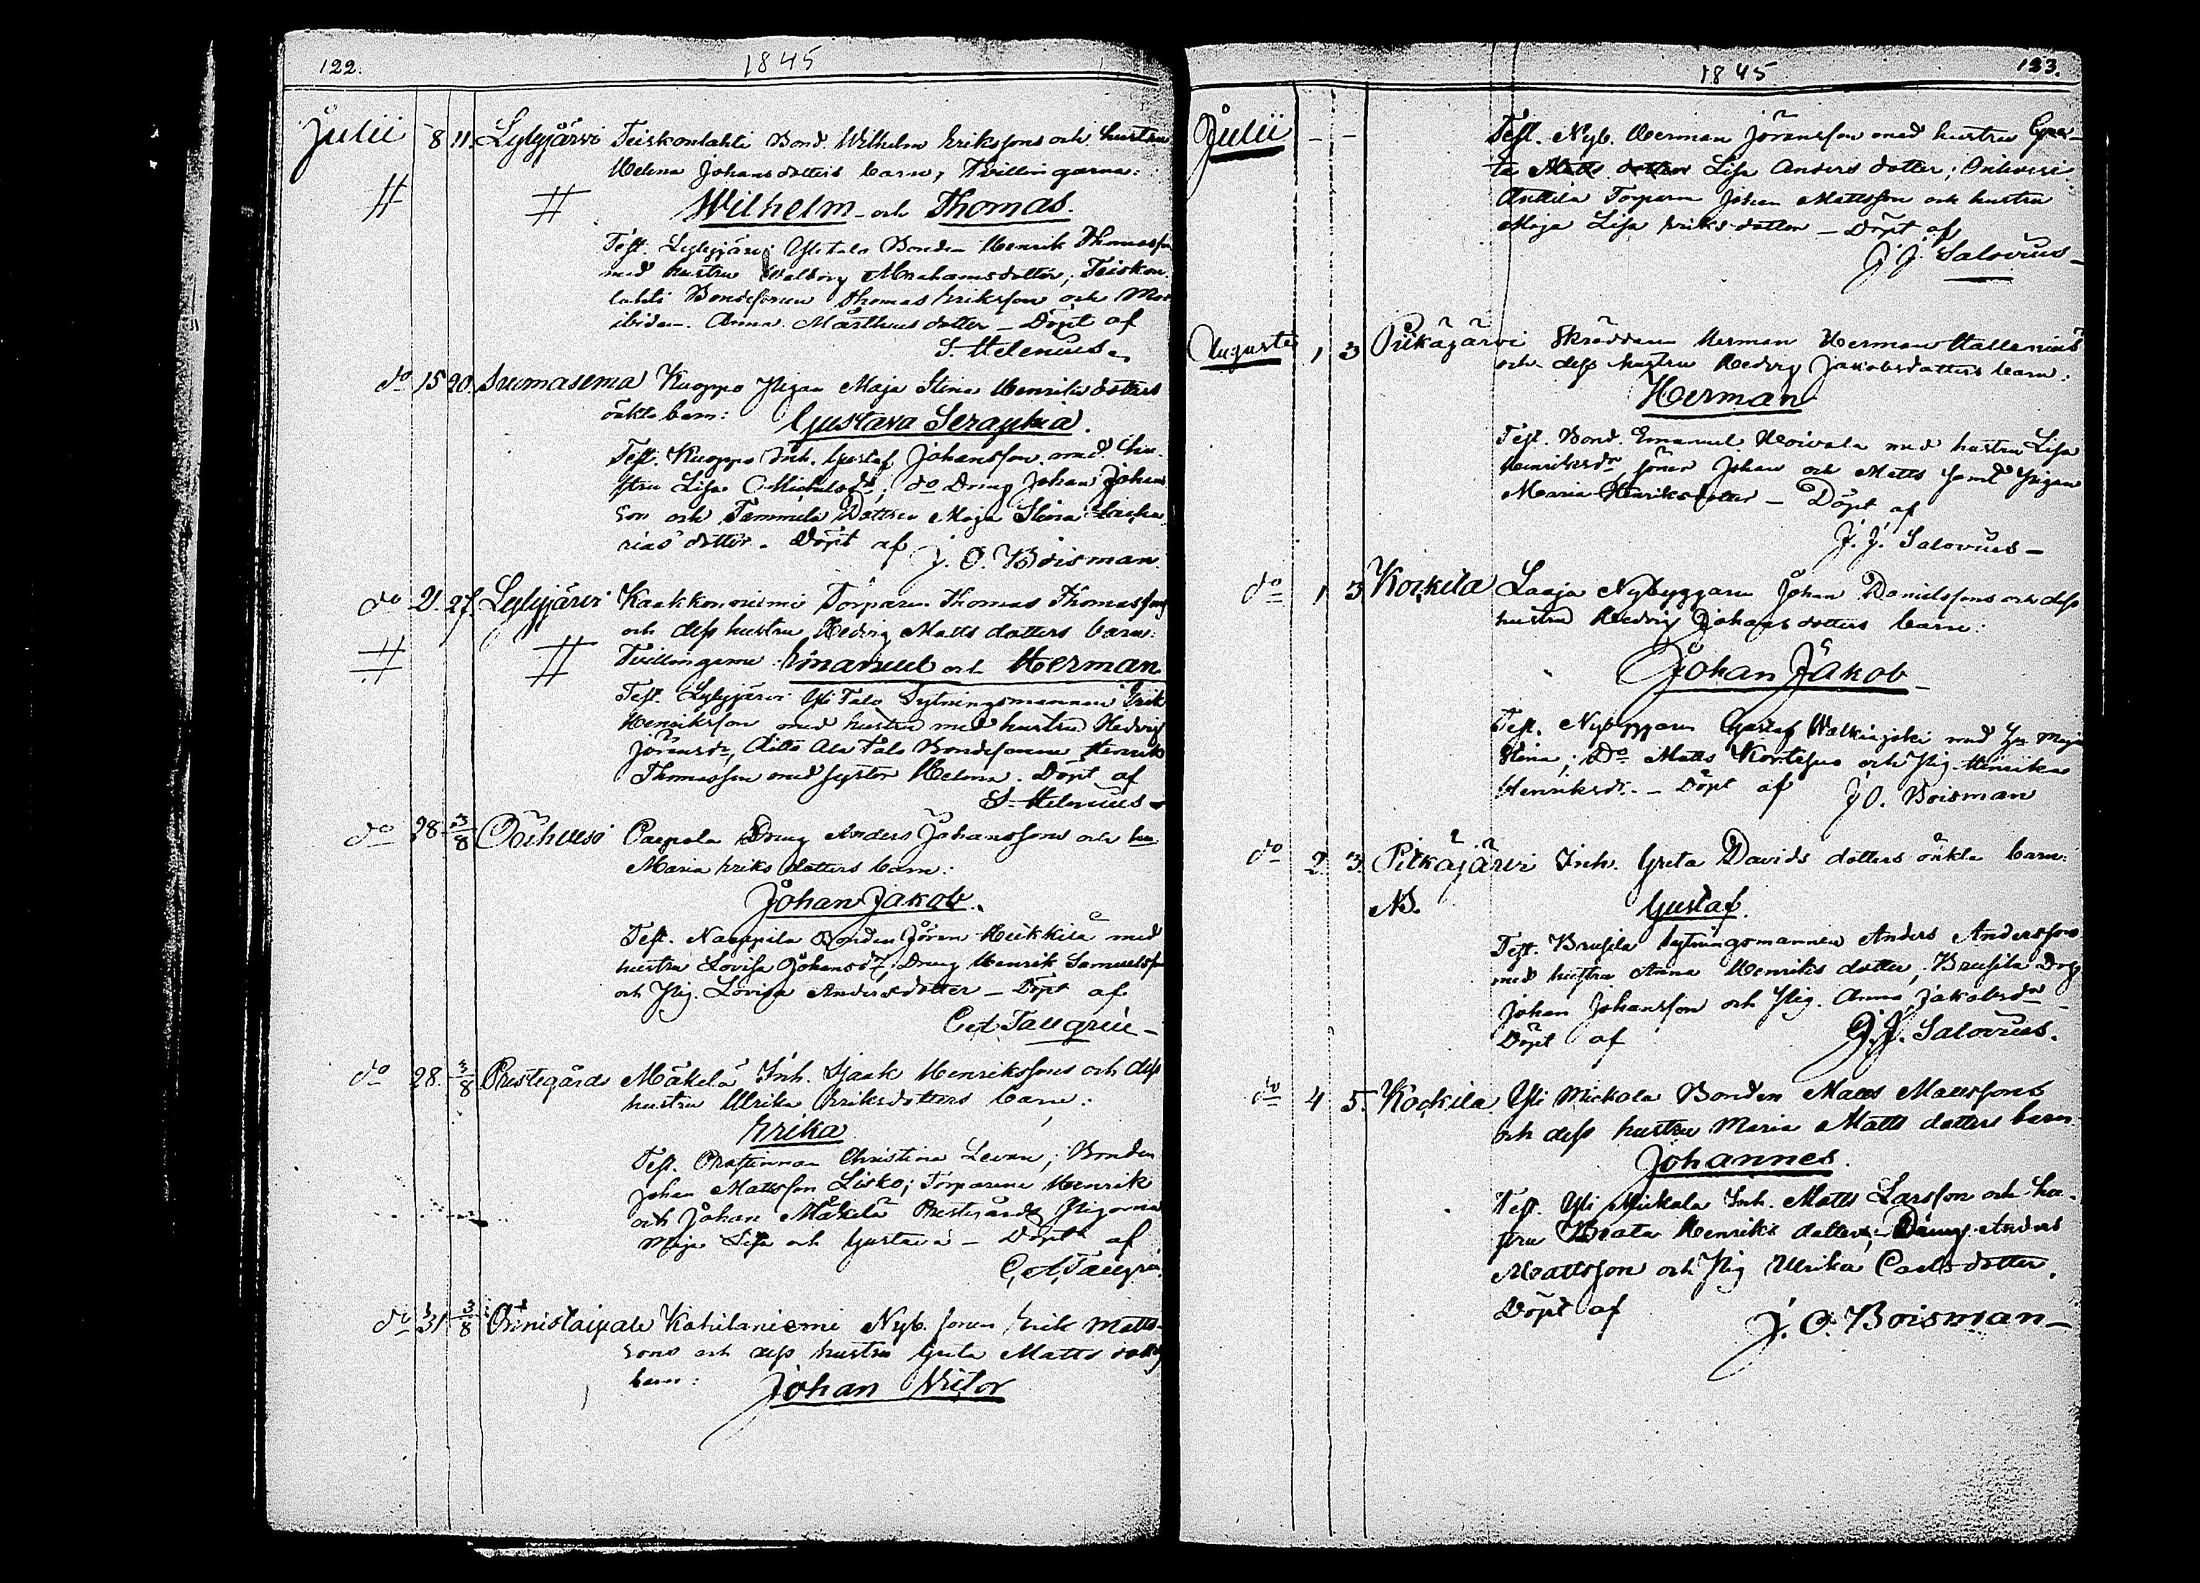 122.
1845
Julii 8 11. Lylyjärvi Teiskonlahti Bond. Wilhelm Erikssons och hustru
Helena Johansdotters barn, Tvillingarna:
# # Wilhelm och Thomas.
Test. Lylyjärvi Yli Talo Bonden Henrik Thomasson
med hustru Walborg Abrahamsdotter, Teiskon
lahti Bondesonen Thomas Eriksson och
ibidem. Anna Mårthensdotter – Döpt af
S. Helenius.
do 15 20. Kuoppo Pigan Maja Stina Henriksdotters
oäkta barn: Gustava Seraphia.
Test. Kuoppo Inh. Gustaf Johansson med hu-
stru Lisa Michelsdr; do Dreng Johan Johans
son och Tammela Dottren Maja Stina Sacha
riasdotter. Döpt af J. O. Boisman
do 21. 27. Lylyjärvi Torparen Thomas Thomassons
och dess hustru Hedvig Matts dotters barn:
# # Tvillingarne Emanuel och Herman
Test. Lylyjärvi Yli Talo Sytningsmannen Erik
Henriksson med hustru med hustru Hedvig
Jöransdr, ditto Ala Talo Bondesonen Henrik
Thomasson med syster Helena. Döpt af
S. Helenius
do 28 3/8 Paepola Dreng Anders Johanssons och hu
Maria Eriks dotters barn:
Johan Jakob.
Test. Naeppila Bonden Jöran Heikkilä med
hustru Lovisa Johansdr, Dreng Henrik Samuelsson
och Pig. Lovisa Andersdotter – Döpt af
C. A. Tallgrén –
do 28. 3/8 Prestegårds Mäkelä Inh. Isaak Henrikssons och dess
hustru Ulrika Eriksdotters barn:
Erika
Test. Christina Levan; Bonden
Johan Mattsson Lisko; Torparene Henrik
och Johan Mäkelä Prestegårds Pigorna
Maja Lisa och Gustava – Döpt af
C. A. Tallgrén.
do 31 3/8 Önnistaipale Katilaniemi Nyb. sonen Erik Matts-
sons och dess hustru Greta Matts dotters
barn: Johan Victor
1845
133.
Julii – – Test. Nyb. Herman Jöransson med hustru Gre-
ta Matts dotter Lisa Anders dotter;
Anttila Torparen Johan Mattsson och hustru
Maja Lisa Eriks dotter – Döpt af
J. J. Salovius –
Augusti 1 3 Pitkäjärvi Skräddaren Herman Herman Hallenius
och dess hustru Hedvig Jakobsdotters barn:
Herman
Test. Bond. Emanuel Hoivala med hustru Lisa
Henriksdr, söner Johan och Matts samt Pigan
Maria Henriksdotter – Döpt af
J. J. Salovius –
do 1 3. Kockila Laaja Nybyggaren Johan Danielssons och dess
hustru Hedvig Johansdotters barn:
Johan Jakob –
Test. Nybyggaren Gustaf med hu Maja
Stina; Do Matts Kortesuo och Pig. Henrika
Henriksdr. – Döpt af J. O. Boisman
do 2 3. Pitkäjärvi Inh. Greta Davids dotters oäkta barn:
NB. Gustaf.
Test. Brusila Sytningsmannen Anders Andersson
med hustru Anna Henriks dotter, Brusila Dreng
Johan Johansson och Pig. Anna Jakobsdr –
Döpt af J. J. Salovius.
do 4 5. Kockila Yli Mickola Bonden Matts Mattssons
och dess hustru Maria Matts dotters barn
Johannes.
Test. Yli Mickola Inh. Matts Larsson och hu-
stru Beata Henriks dotter, – Dreng Anders
Mattsson och Pig Ulrika Carlsdotter.
Döpt af J. O. Boisman –